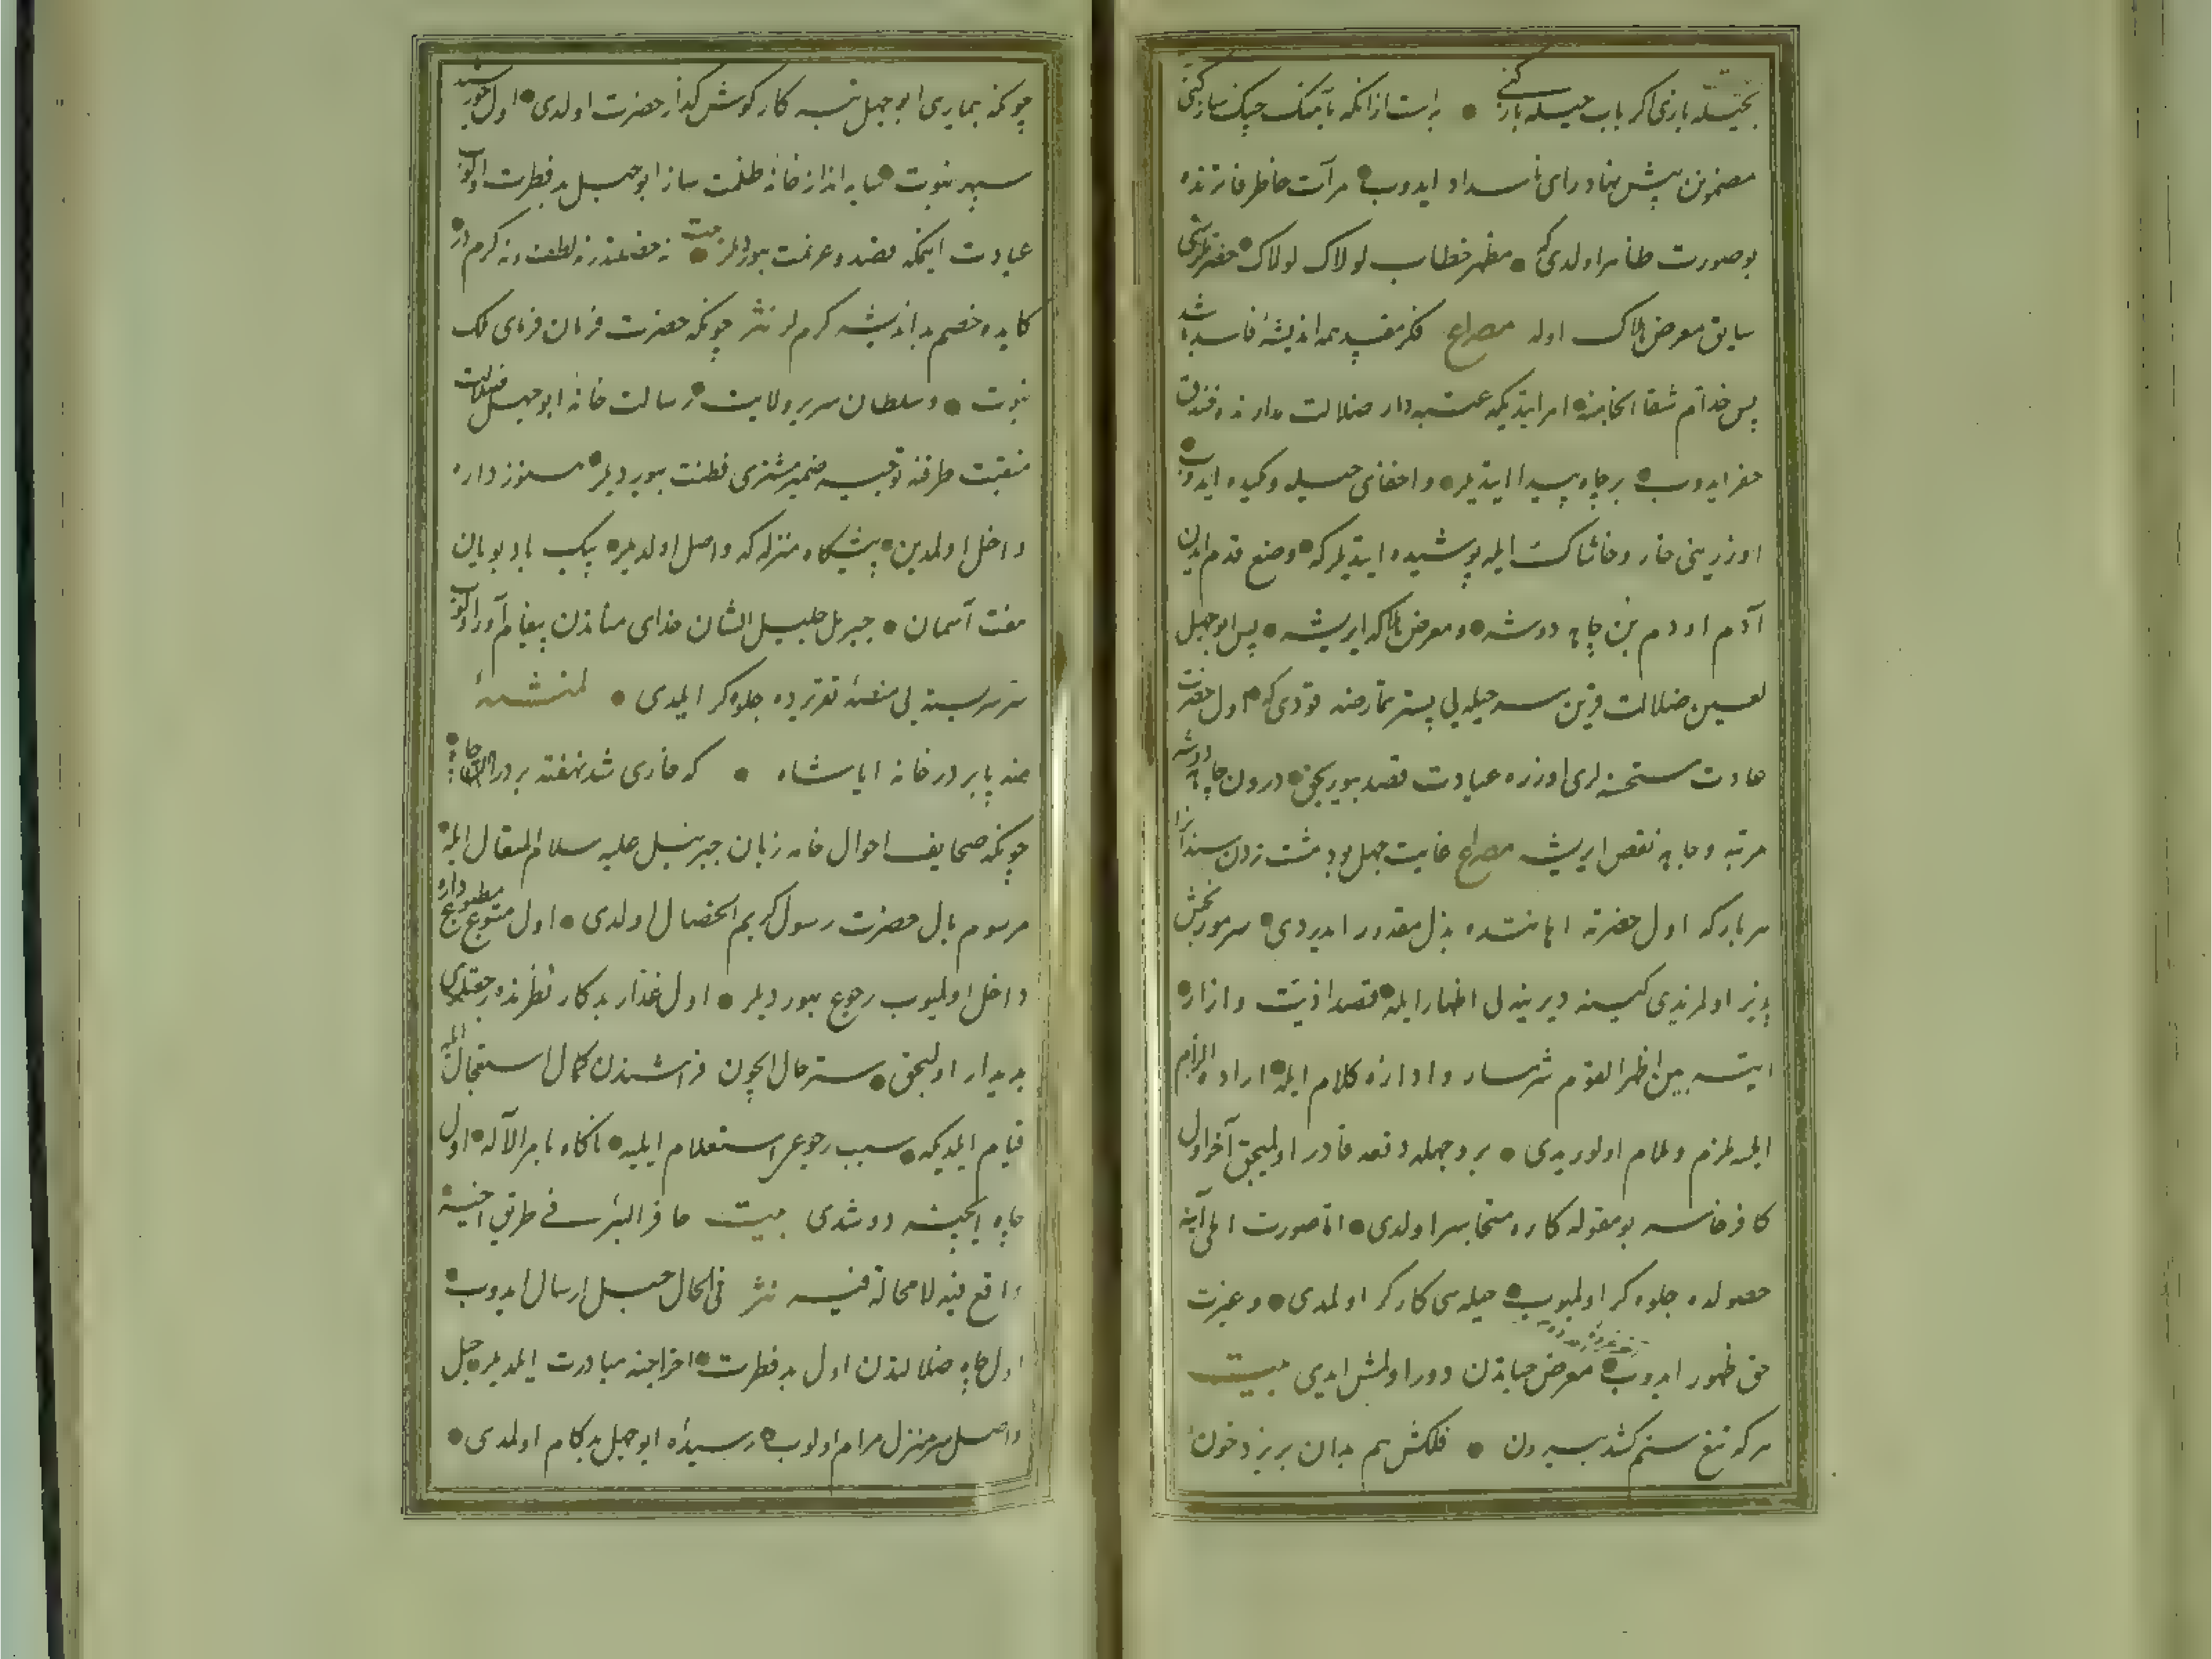 بحیله بازی اگر باب حیله باز کنی ● به است از آنکه باهنگ جنگ ساز کنی
مضمونن پیش نهاد رای ناسداد ایدوب ● مرآت خاطر فاترنده
بو صورت ظاهر اولدی که ● مظهر خطاب لولاک لولاک ● حضرتلرینی
سابق معرض هلاک اوله مصراع فکر مفسد همه اندیشهٔ فاسد باشد
پس خدام شقا انجامنه ● امر ایتدیکه عتبه‌دار ضلالت مدارنده خندق
حفر ایدوب ● بر چاه پیدا ایتدیلر ● و اخفای حیله و کیده ایدوب ●
اوزرینی خار و خاشاک ایله پوشیده ایتدیلر که ● وضع قدم ایدن
آدم اودم بن چاهه دوشه ● و معرض هلاکه ایریشه ● پس ابو جهل
لعین ضلالت قرین سر حیله‌یی بستر تمارضه قودی که ● اول حضرت
عادت مستحسنه‌لری اوزره عیادت قصد بیوریجق ● درون چاهه دوشه
مرتبه و جاهه نقص ایریشه مصراع غایت جهل بود مشت زدن سندانرا
هر بار که اول حضرته اهانتده بذل مقدور ایدردی ● سرمو رخش
پذیر اولمزیدی کینه دیرینه‌لی اظهار ایله ● قصد اذیت و آزار ●
ایتسه بین اظهر القوم شرمسار و اداره کلام ایله ● اراده الزام
ایلسه ملزم و ملام اولوریدی ● بر وجهله دفعه قادر اولمیجق آخر اول
کافر خاسر بو مقوله کاره متجاسر اولدی ● اما صورت املی آینه
حصولده جلوه‌کر اولمیوب ● حیله‌سی کارکر اولمدی ● و غیرت
حق ظهور ایدوب ● معرض حیاتدن دور اولمش ایدی بیت
هر که تیغ ستم کشد بیرون ● فلکش هم بدان بریزد خون
چونکه بیماری ابو جهل تبه کار کوش گذار حضرت اولدی ● اول خورشید
سپهر نبوت ● سایه انداز خانهٔ ظلمت ساز ابو جهل بد فطرت اولوب
عیادت ایتمکه قصد و عزیمت بیوردیلر ● بیت
کاید و خصم بد اندیشه کرملر نثر چونکه حضرت فرمان فرمای ملک
نبوت ● و سلطان سریر ولایت ● رسالت خانهٔ ابو جهل ضلالت
منقبت طرفنه توجیه ضمیر مشتری فطنت بیوردیلر ● هنوز داره
داخل اولمدین ● پیشگاه منزله که واصل اولدیلر ● پیک باد پویان
هفت آسمان ● جبریل جلیل الشان خدای مناندن پیغام آور اولوب
سر سربسته‌یی منصهٔ تقریرده جلوه‌کر ایلدی ● لمنشئه
منه پا بر در خانه ایا شاه ● که خاری شد نهفته بر در آن چاه ●
چونکه صحایف احوال خامه زبان جبرئیل علیه سلام المتعال ایله ●
مرسوم بال حضرت رسول کریم الخصال اولدی ● اول متبوع مطبوع داره
داخل اولمیوب رجوع بیوردیلر ● اول غدار بد کار نظرنده رجعتلری
پدیدار اولیجق ● ستر حال ایچون فراشندن کمال استعجال ایله
قیام ایلدیکه ● سبب رجوعی استعلام ایلیه ● ناکاه بامر الآله ● اول
چاهه ایچنه دوشدی بیت حافر البئر فی طریق اخیه ●
واقع فیه لا محالة فیه نثر فی الحال حبل ارسال ایدوب ●
اول چاه ضلالتدن اول بد فطرت ● اخراجنه مبادرت ایلدیلر ● حبل
واصل سر منزل مرام اولوب ● رسیدهٔ ابو جهل بد کام اولمدی ●